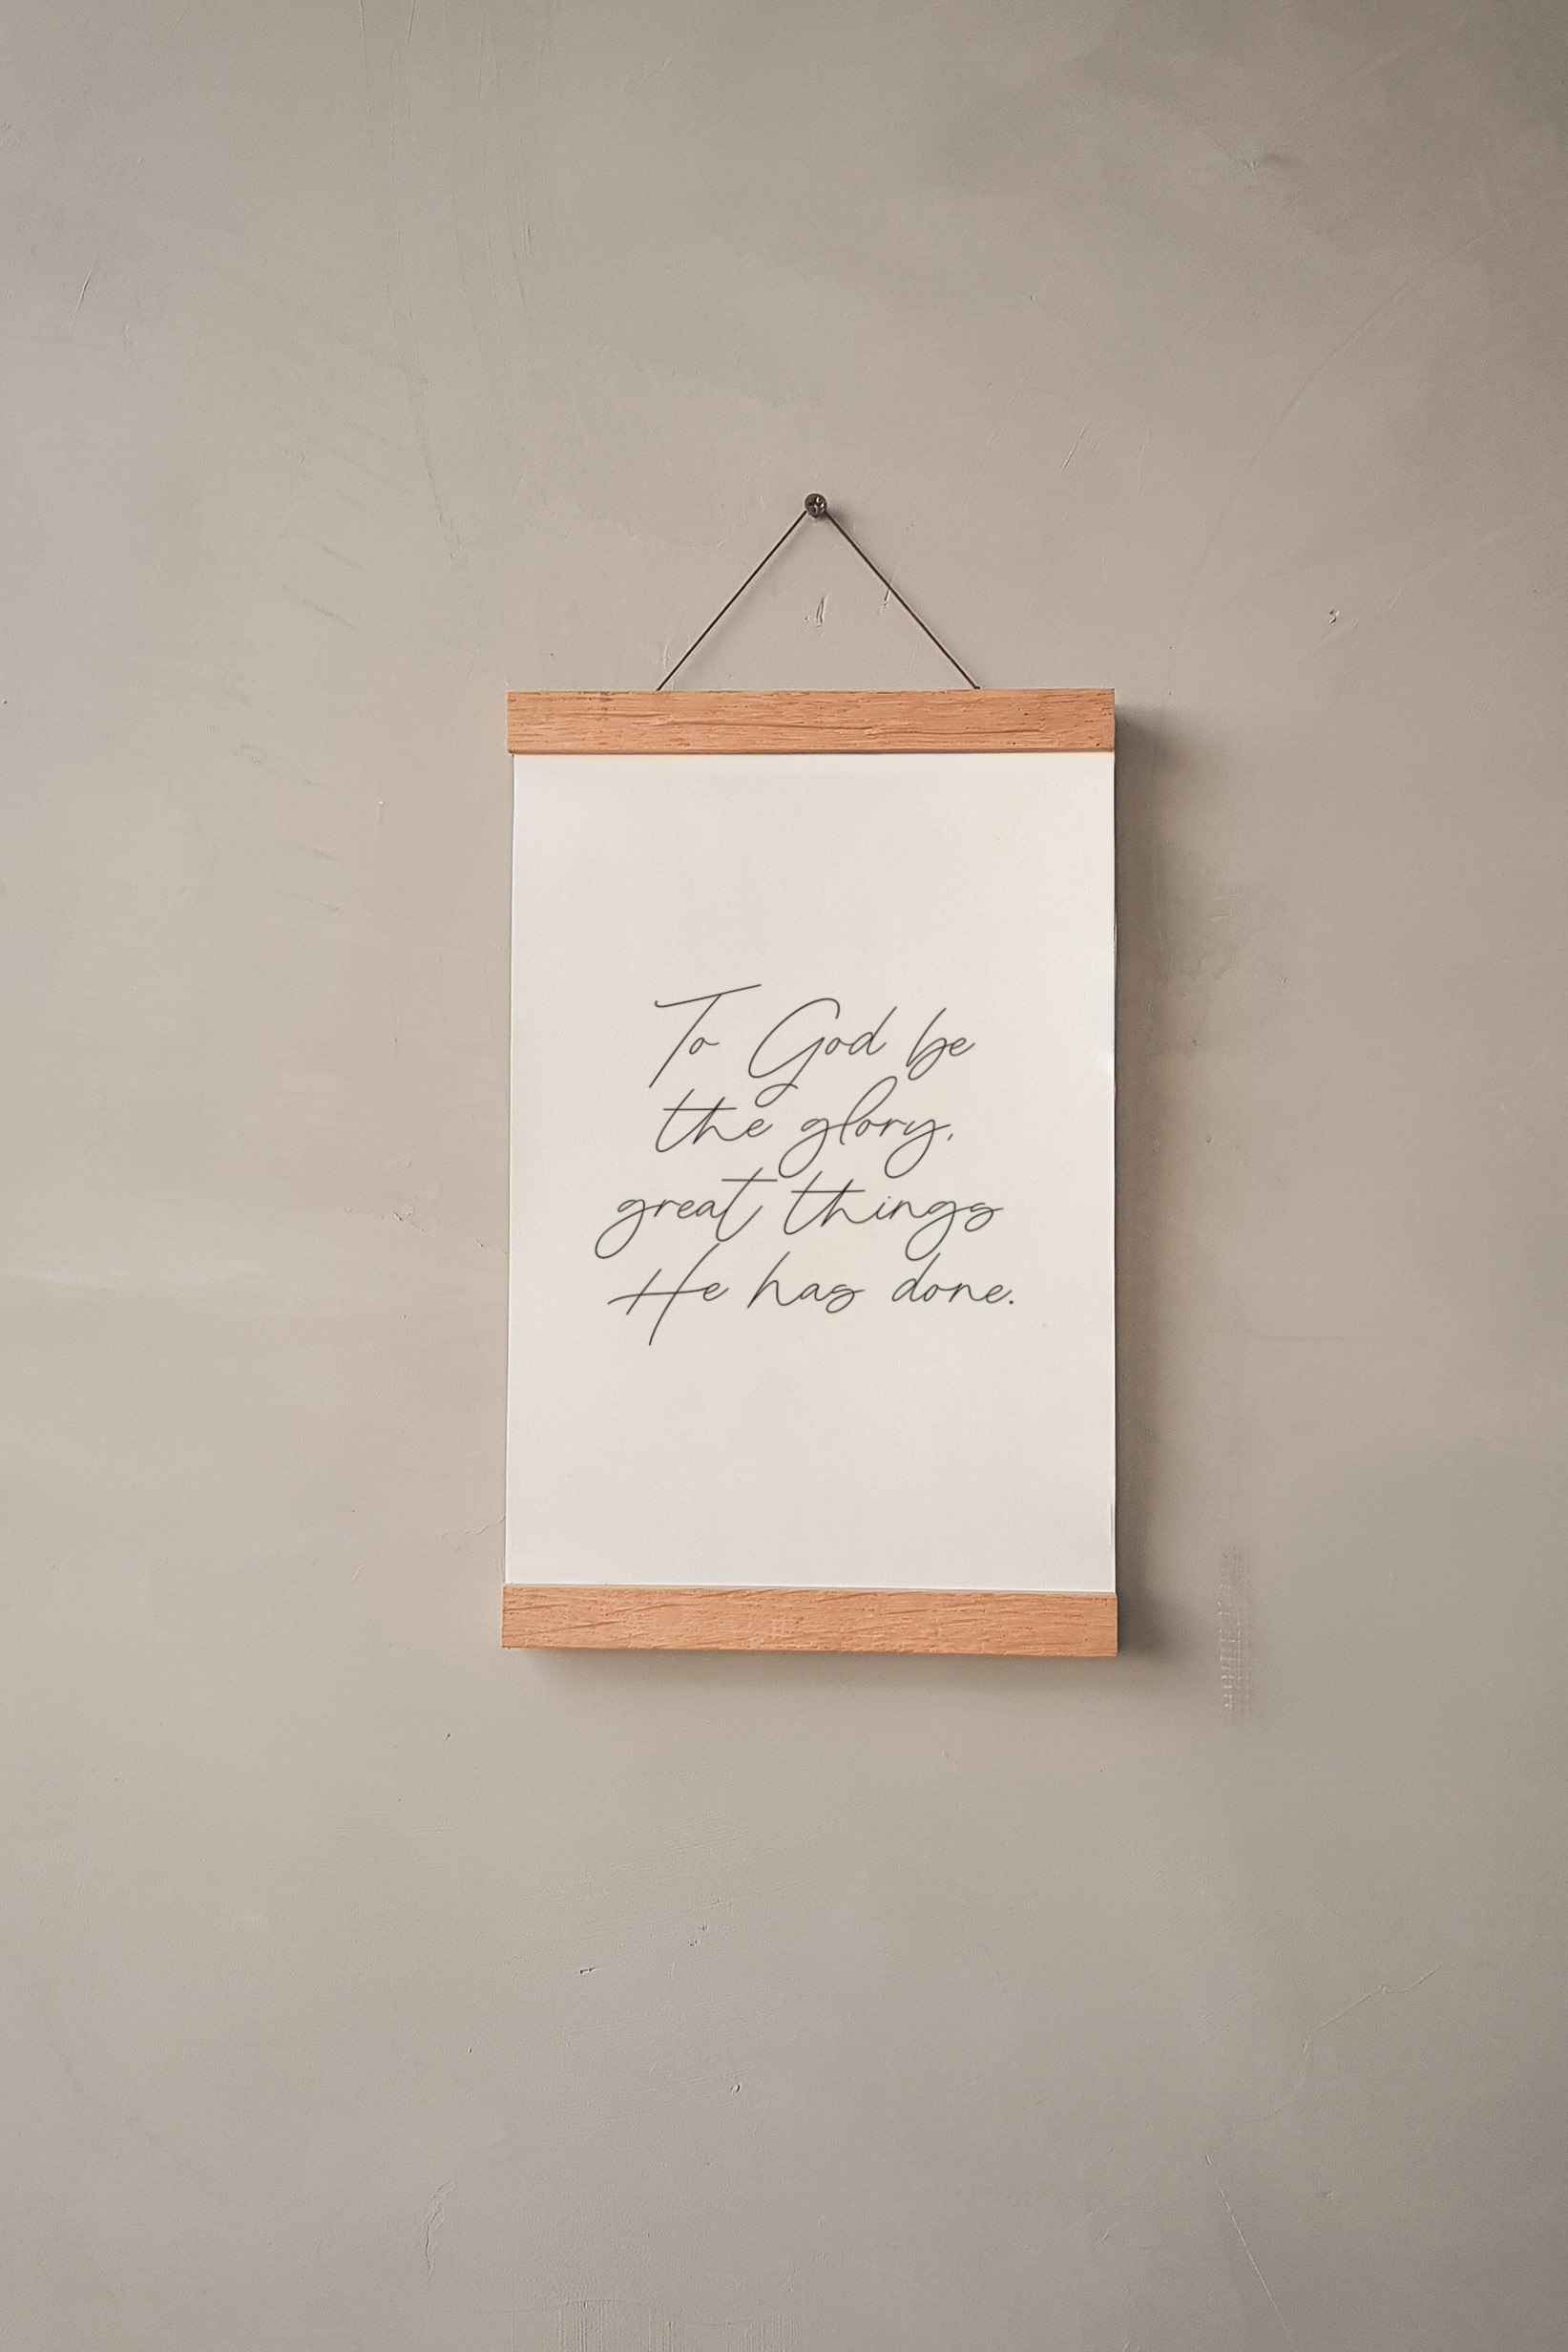 To God be
the glory,
great things
He has done.